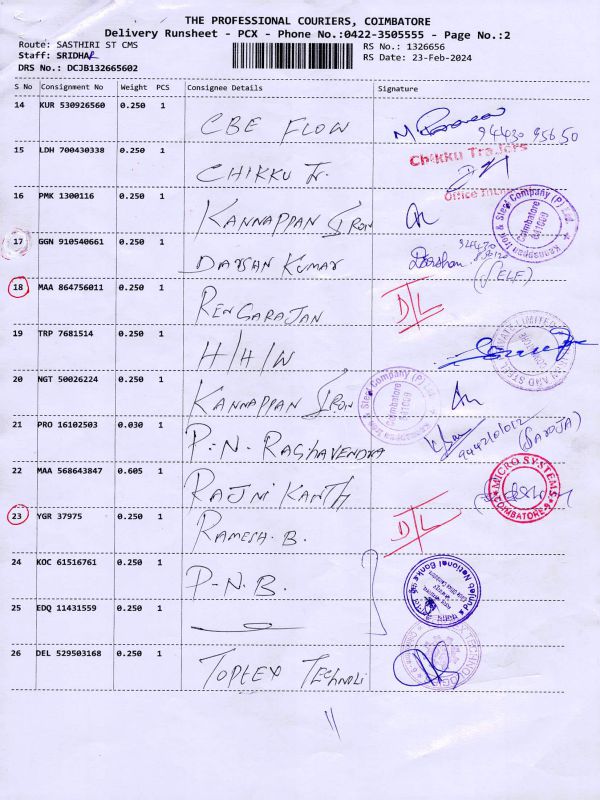 THE PROFESSIONAL COURIERS, COIMBATORE
Delivery Runsheet - PCX - Phone No.:0422-3505555 - Page No.:2
Route: SASTHIRI ST CMS
RS No.: 1326656
Staff: SRIDHAR
RS Date: 23-Feb-2024
DRS No.: DCJB132665602
S No Consignment No Weight PCS Consignee Details Signature
14 KUR 530926560 0.250 1 CBE FLOW 94430 95650
15 LDH 700430338 0.250 1 CHIKKU Tr. Chikku Traders
16 PMK 1300116 0.250 1 KANNAPPAN IRON
Kannappan Iron & Steel Company (P) Ltd. Coimbatore 641009
17 GGN 910540661 0.250 1 DARSAN KUMAR Darshan (SELF)
18 MAA 864756011 0.250 1 RENGARAJAN D/L
19 TRP 7681514 0.250 1 H/H/W
20 NGT 50026224 0.250 1 KANNAPPAN IRON
Kannappan Iron & Steel Company (P) Ltd. Coimbatore 641009
21 PRO 16102503 0.030 1 P.N. RAGHAVENDRA 9442101012 (SAROJA)
22 MAA 568643847 0.605 1 RAJNI KANTH
MICRO SYSTEMS COIMBATORE
23 YGR 37975 0.250 1 RAMESH. B. D/L
24 KOC 61516761 0.250 1 P.N.B.
Punjab National Bank
25 EDQ 11431559 0.250 1
26 DEL 529503168 0.250 1 TOPTEX TECHNOLI